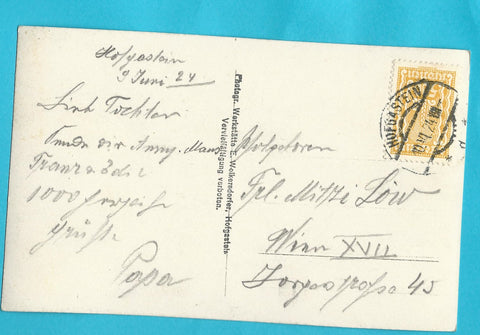 Hofgastein
9 Juni 24
Liebe Tochter
Sende dir Anny, Mama
Franz
1000 herzliche
Grüße
Papa
Photogr. Werkstätte E. Wolkersdorfer, Hofgastein
Vervielfältigung verboten.
HOFGASTEIN
Wohlgeboren
Frl. Mitzi Löw
Wien XVII
45